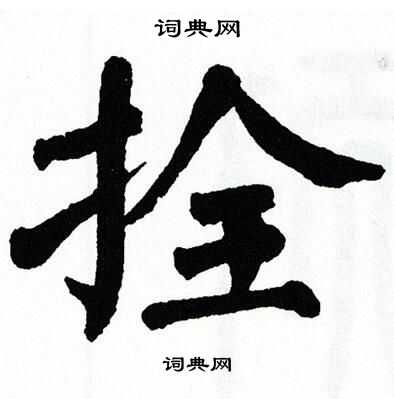 词典网
拴
词典网